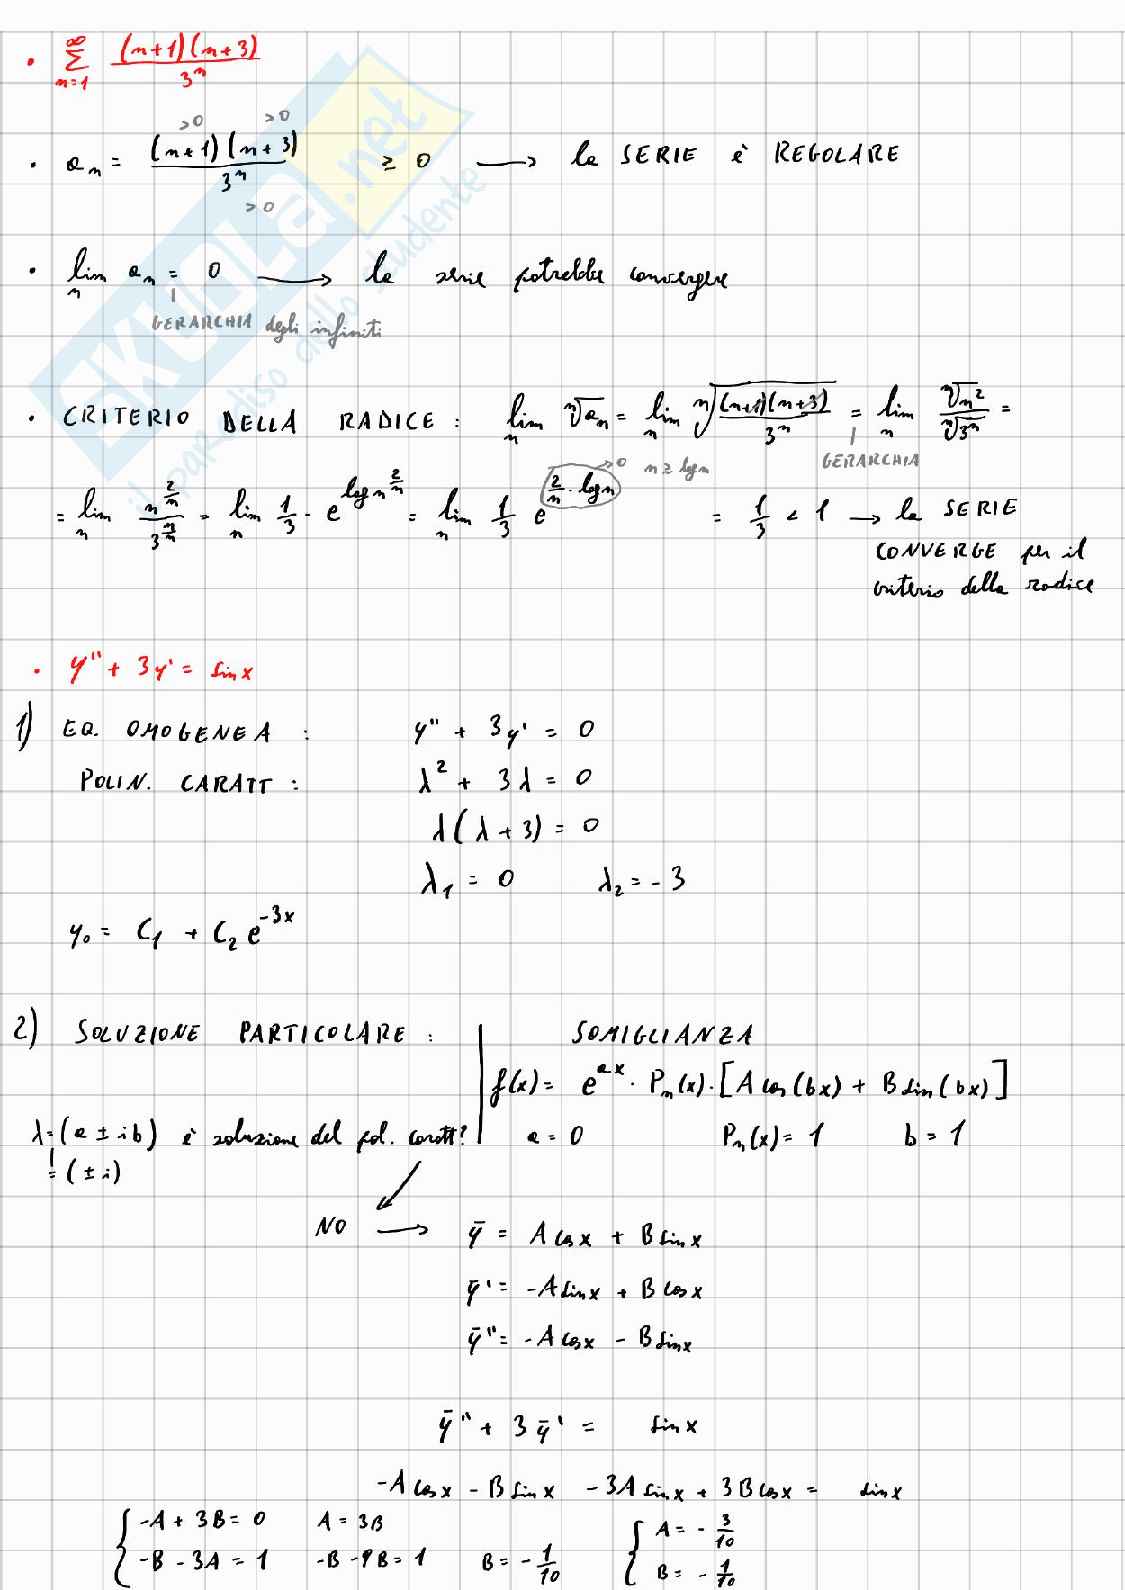 • ∑_{n=1}^{∞} (n+1)(n+3) / 3^n
>0 >0
• a_n = (n+1)(n+3) / 3^n ≥ 0 ⟶ la SERIE è REGOLARE
>0
• lim_n a_n = 0 ⟶ la serie potrebbe convergere
GERARCHIA degli infiniti
• CRITERIO DELLA RADICE : lim_n ⁿ√a_n = lim_n ⁿ√((n+1)(n+3) / 3^n) = lim_n ⁿ√n² / ⁿ√3^n =
GERARCHIA
= lim_n n^{2/n} / 3^{n/n} = lim_n 1/3 · e^{log n^{2/n}} = lim_n 1/3 e^{2/n · log n} →0 n ≥ log n = 1/3 < 1 → la SERIE
CONVERGE per il
criterio della radice
• y'' + 3y' = sin x
1) EQ. OMOGENEA : y'' + 3y' = 0
POLIN. CARATT : λ² + 3λ = 0
λ(λ+3) = 0
λ₁ = 0 λ₂ = -3
y₀ = C₁ + C₂ e^{-3x}
2) SOLUZIONE PARTICOLARE : SOMIGLIANZA
f(x) = e^{ax} · P_n(x) · [A cos(bx) + B sin(bx)]
λ = (a ± ib) è soluzione del pol. caratt? a = 0 P_n(x) = 1 b = 1
= (± i)
NO ⟶ ȳ = A cos x + B sin x
ȳ' = -A sin x + B cos x
ȳ'' = -A cos x - B sin x
ȳ'' + 3ȳ' = sin x
-A cos x - B sin x - 3A sin x + 3B cos x = sin x
{ -A + 3B = 0 A = 3B { A = - 3/10
-B - 3A = 1 -B - 9B = 1 B = - 1/10 B = - 1/10
SKUOLA.net
il paradiso dello studente